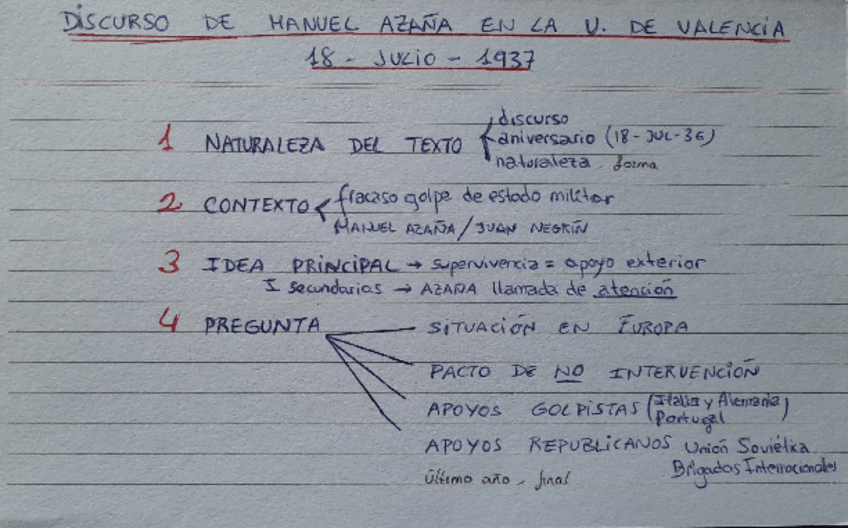 DISCURSO DE MANUEL AZAÑA EN LA U. DE VALENCIA
18 - JULIO - 1937
1 NATURALEZA DEL TEXTO
discurso
aniversario (18-JUL-36)
naturaleza. forma
2 CONTEXTO
fracaso golpe de estado militar
MANUEL AZAÑA / JUAN NEGRÍN
3 IDEA PRINCIPAL → supervivencia = apoyo exterior
I secundarias → AZAÑA llamada de atención
4 PREGUNTA
SITUACIÓN EN EUROPA
PACTO DE NO INTERVENCIÓN
APOYOS GOLPISTAS (Italia y Alemania)
Portugal
APOYOS REPUBLICANOS Unión Soviética
Brigadas Internacionales
último año, final